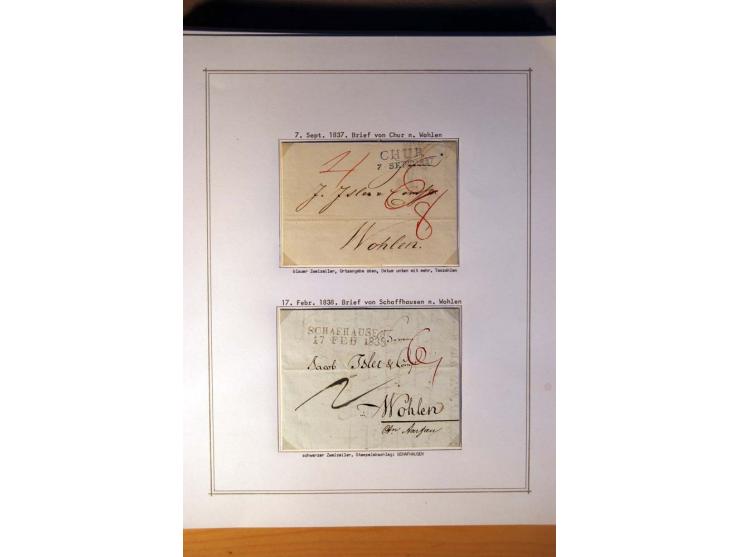 7. Sept. 1837. Brief von Chur n. Wohlen
CHUR
7 SEPT 1837
4
J. Isler & Comp.
6
8
Wohlen.
blauer Zweizeiler, Ortsangabe oben, Datum unten mit mehr, Taxzahlen
17. Febr. 1838. Brief von Schaffhausen n. Wohlen
SCHAFHAUSEN
17 FEB 1838
6
Jacob Isler & Comp
Wohlen
Ctn Aargau
schwarzer Zweizeiler, Stempelabschlag: SCHAFHAUSEN